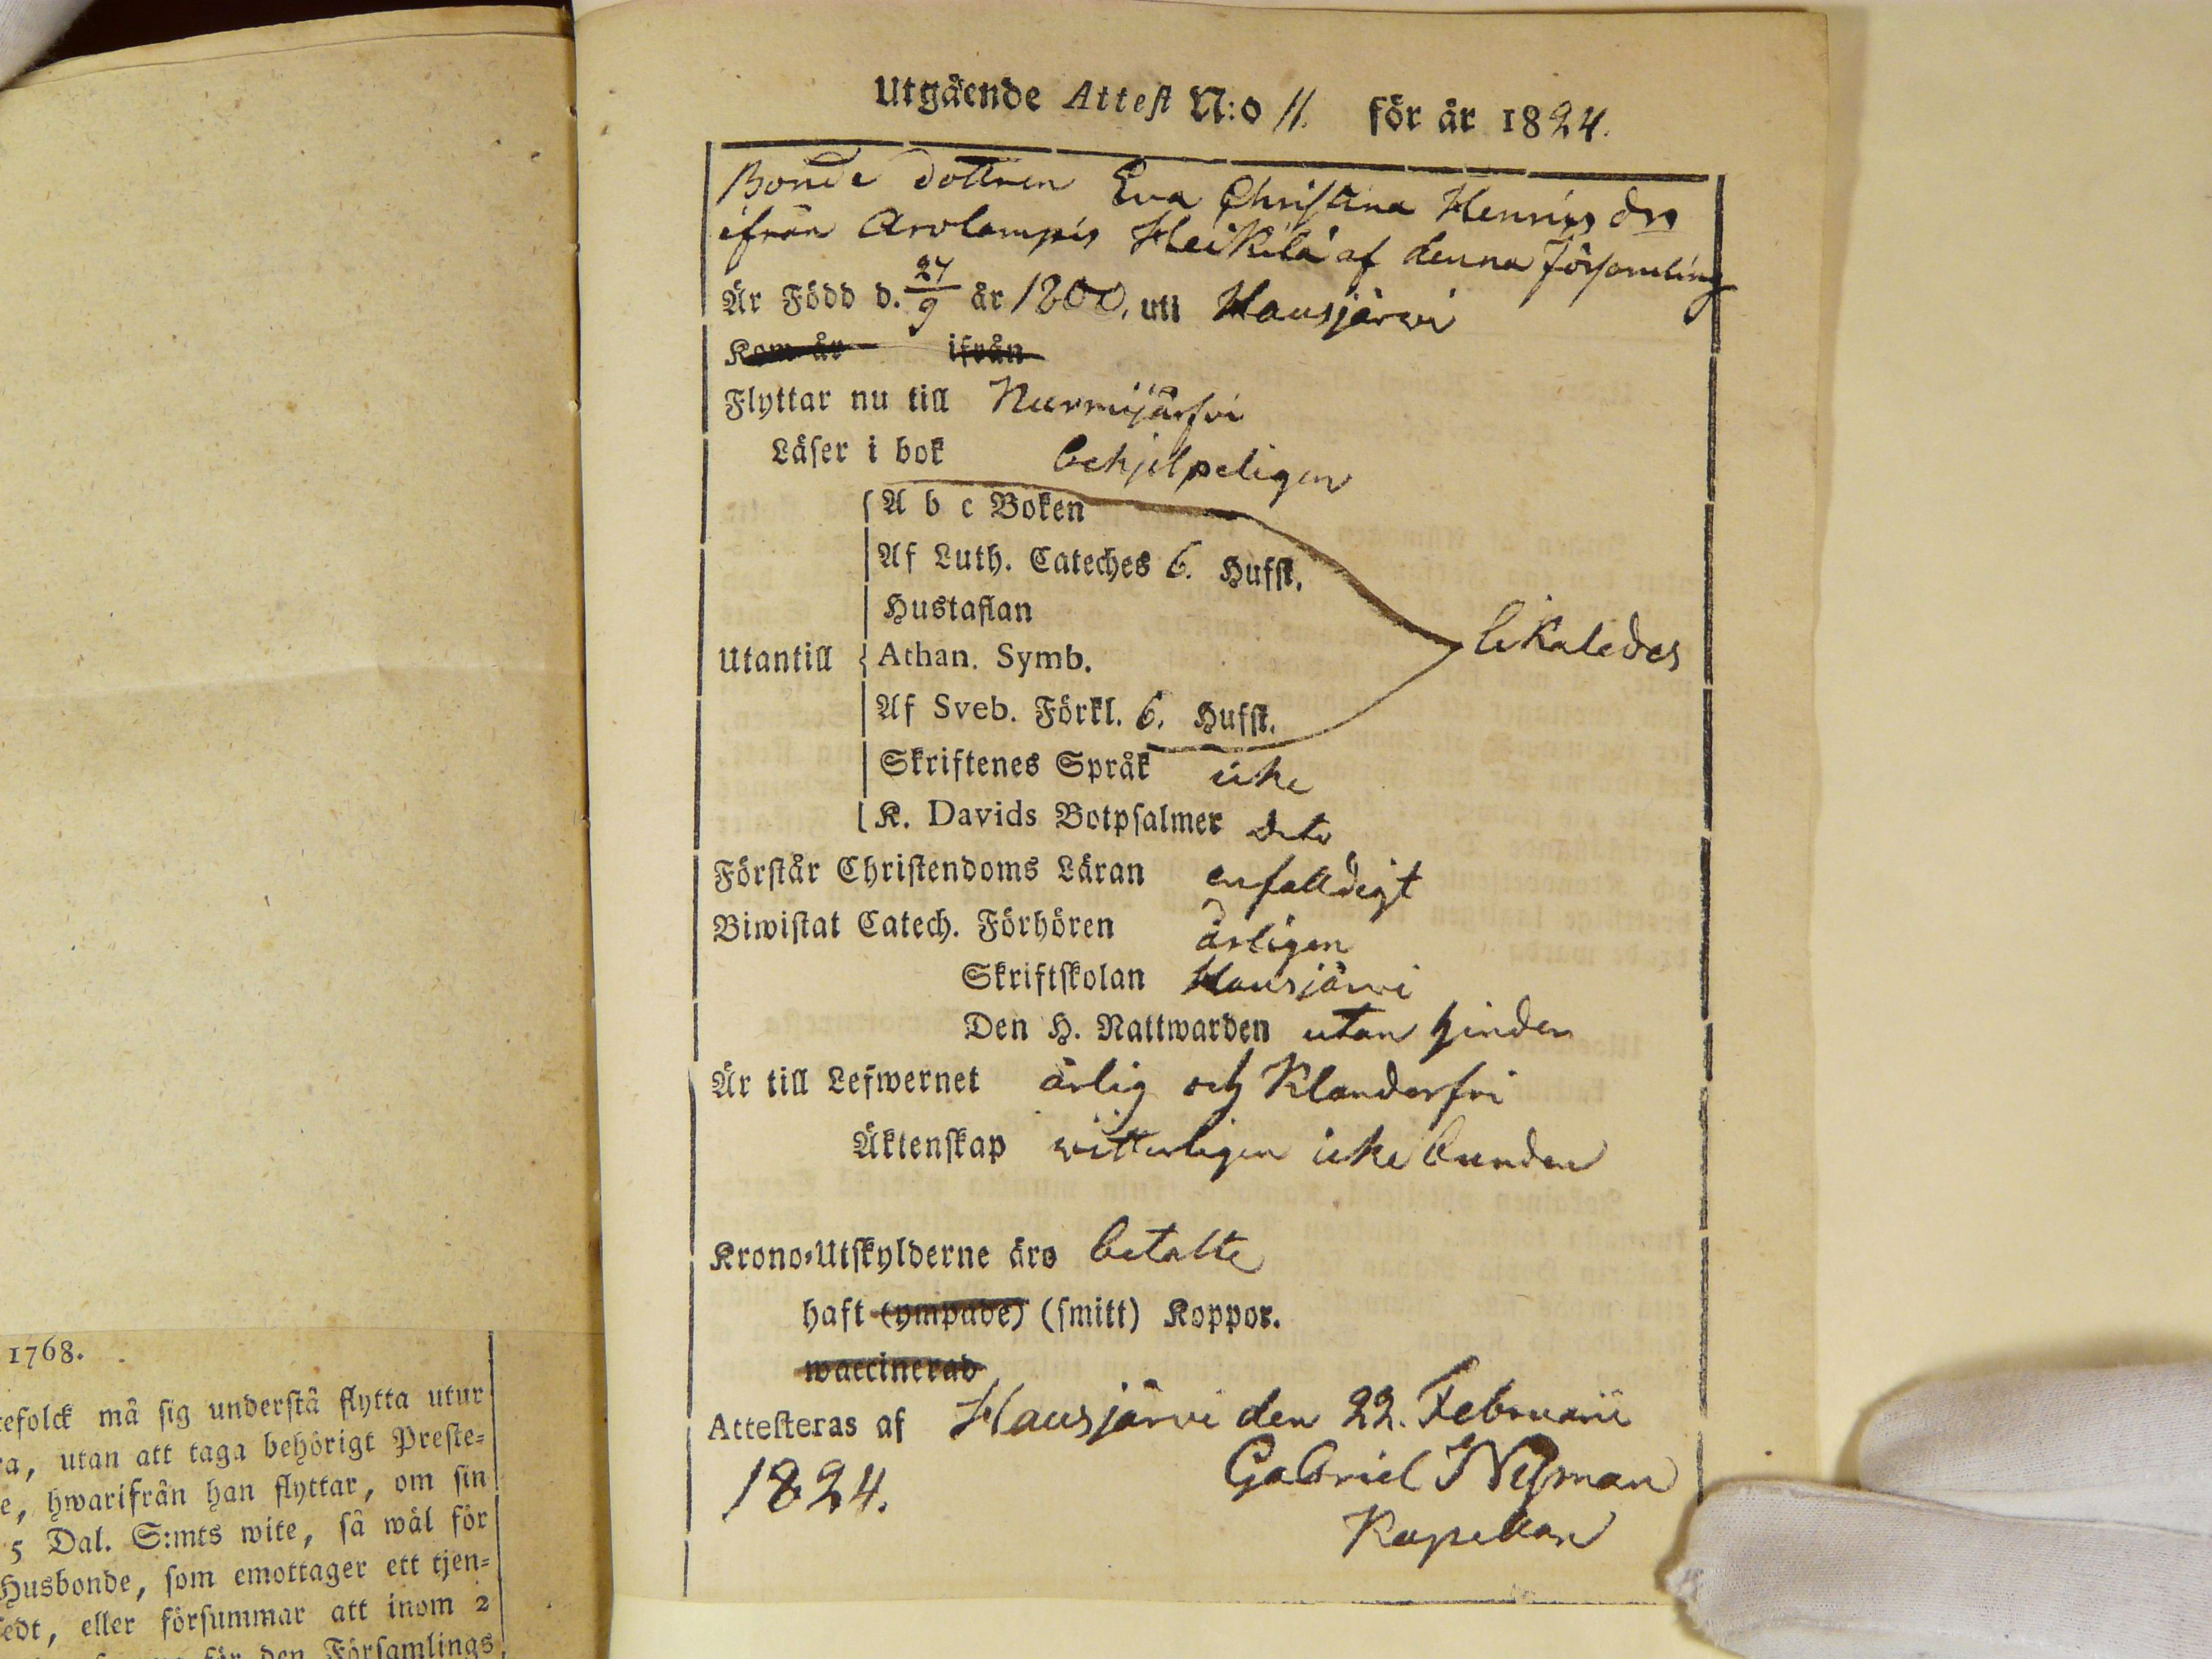 Utgående Attest N:o 11. för år 1824.
Bonde dottren Eva Christina Henrics dr
ifrån Arolampis Heikilä af denna församling
Är Född d. 27/9 år 1800. uti Hausjärvi
Kom år ifrån
Flyttar nu till Nurmijärfvi
Läser i bok behjelpeligen
A b c Boken
Af Luth. Cateches 6. Hufst.
Hustaflan
Utantill Athan. Symb. likaledes
Af Sveb. Förkl. 6. Hufst.
Skriftenes Språk icke
K. Davids Botpsalmer dito
Förstår Christendoms Läran enfalldigt
Biwistat Catech. Förhören årligen
Skriftskolan Hausjärvi
Den H. Nattwarden utan hinder
Är till Lefwernet ärlig och Klanderfri
Äktenskap vitterligen icke bunden
Krono-Utskylderne äro betalte
haft (ympade) (smitt) Koppor.
waccinerad
Attesteras af Hausjärvi den 22. Februarii
1824. Gabriel Nyman
Kapellan
1768.
tefolck må sig understå flytta utur
ra, utan att taga behörigt Preste-
e, hwarifrån han flyttar, om sin
5 Dal. S:mts wite, så wäl för
Husbonde, som emottager ett tjen-
edt, eller försummar att inom 2
för den Församlings